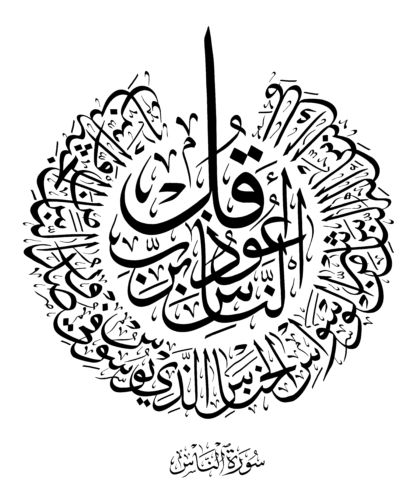 قُلْ أَعُوذُ بِرَبِّ النَّاسِ
مَلِكِ النَّاسِ إِلَٰهِ النَّاسِ مِن شَرِّ الْوَسْوَاسِ الْخَنَّاسِ الَّذِي يُوَسْوِسُ فِي صُدُورِ النَّاسِ مِنَ الْجِنَّةِ وَالنَّاسِ
سُورَةُ النَّاسِ